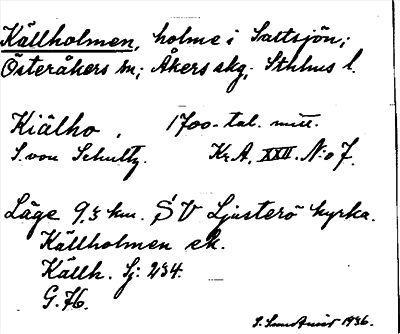 Källholmen, holme i Saltsjön;
Österåkers sn; Åkers skg, Sthlms l.
Kiälho, 1700-tal. mitt.
S. von Schultz. Kr.A, XXII. N:o 7.
Läge 9.5 km. SV Ljusterö kyrka.
Källholmen ek.
Källh. Sj: 234.
G. 76.
1936.